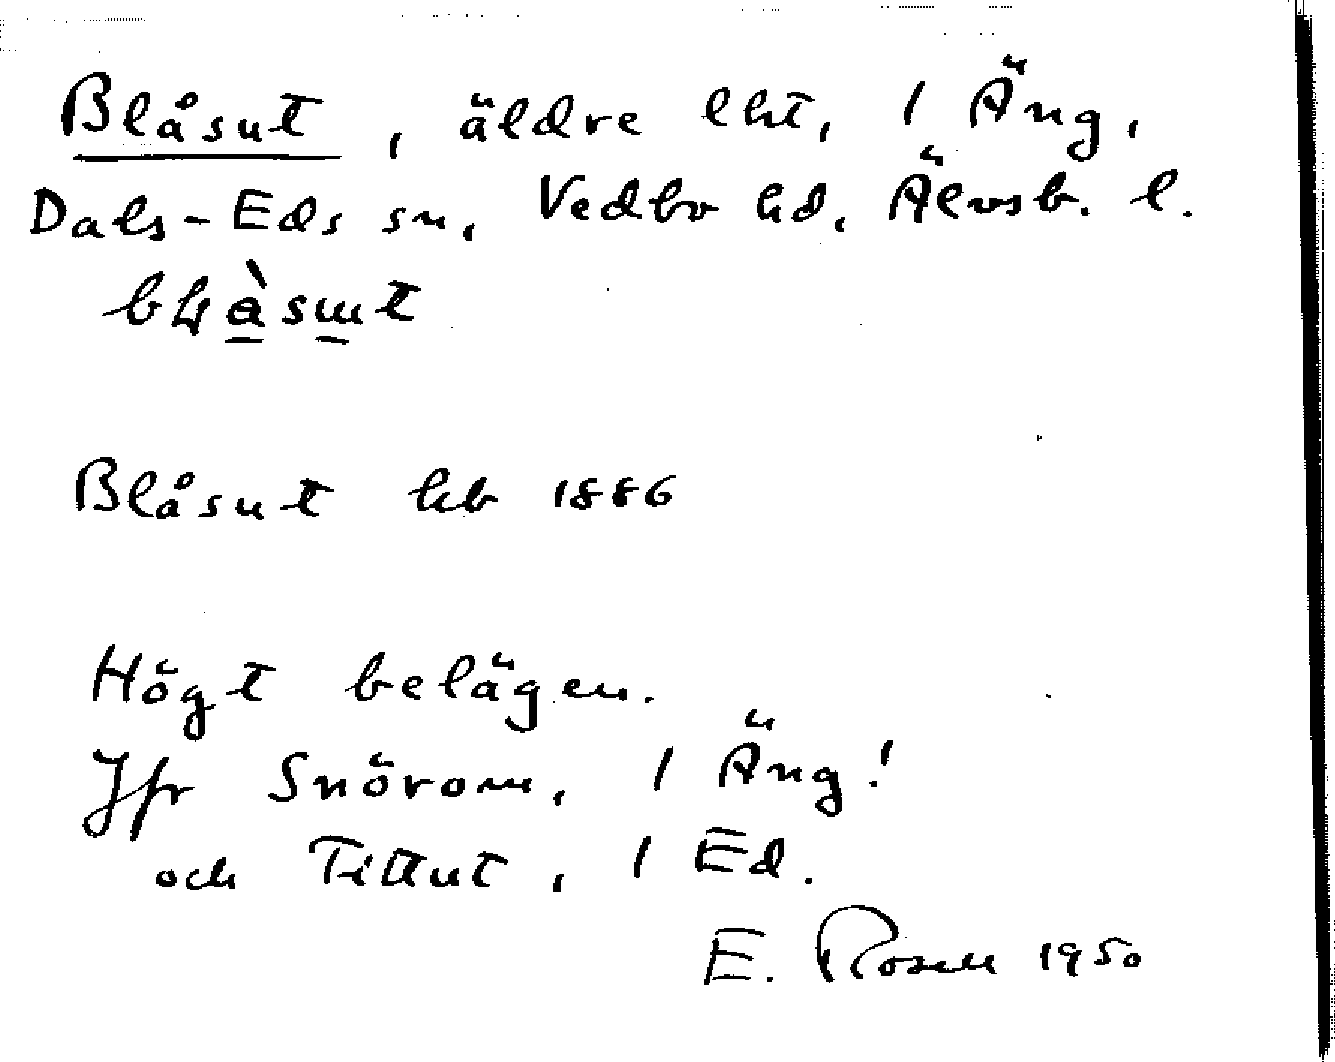 Blåsut, äldre lht, / Äng,
Dals-Eds sn, Vedbo hd, Älvsb. l.
Blåsut hb 1886
Högt belägen.
Jfr Snörom, / Äng!
och Tittut, / Ed.
E. Rosell 1950